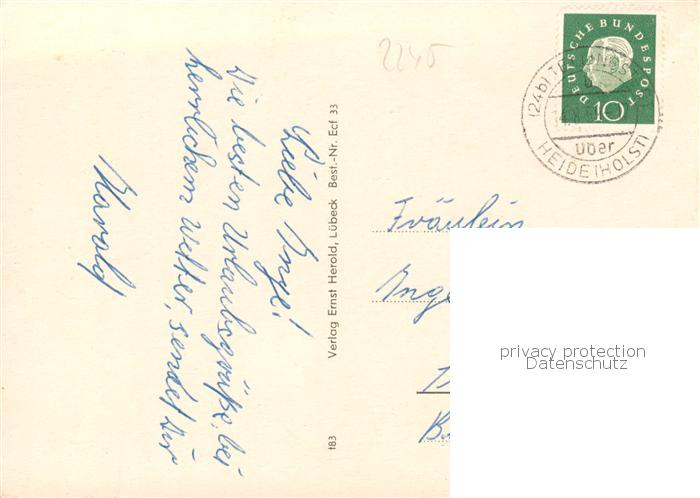 Liebe Inge!
Die besten Urlaubsgrüße, bei
herrlichem Wetter, sendet Dir
Harald
2245
Verlag Ernst Herold, Lübeck Best.-Nr. Ecf 33
183
DEUTSCHE BUNDESPOST
10
(24b)
über
HEIDE (HOLST)
Fräulein
Inge
privacy protection
Datenschutz